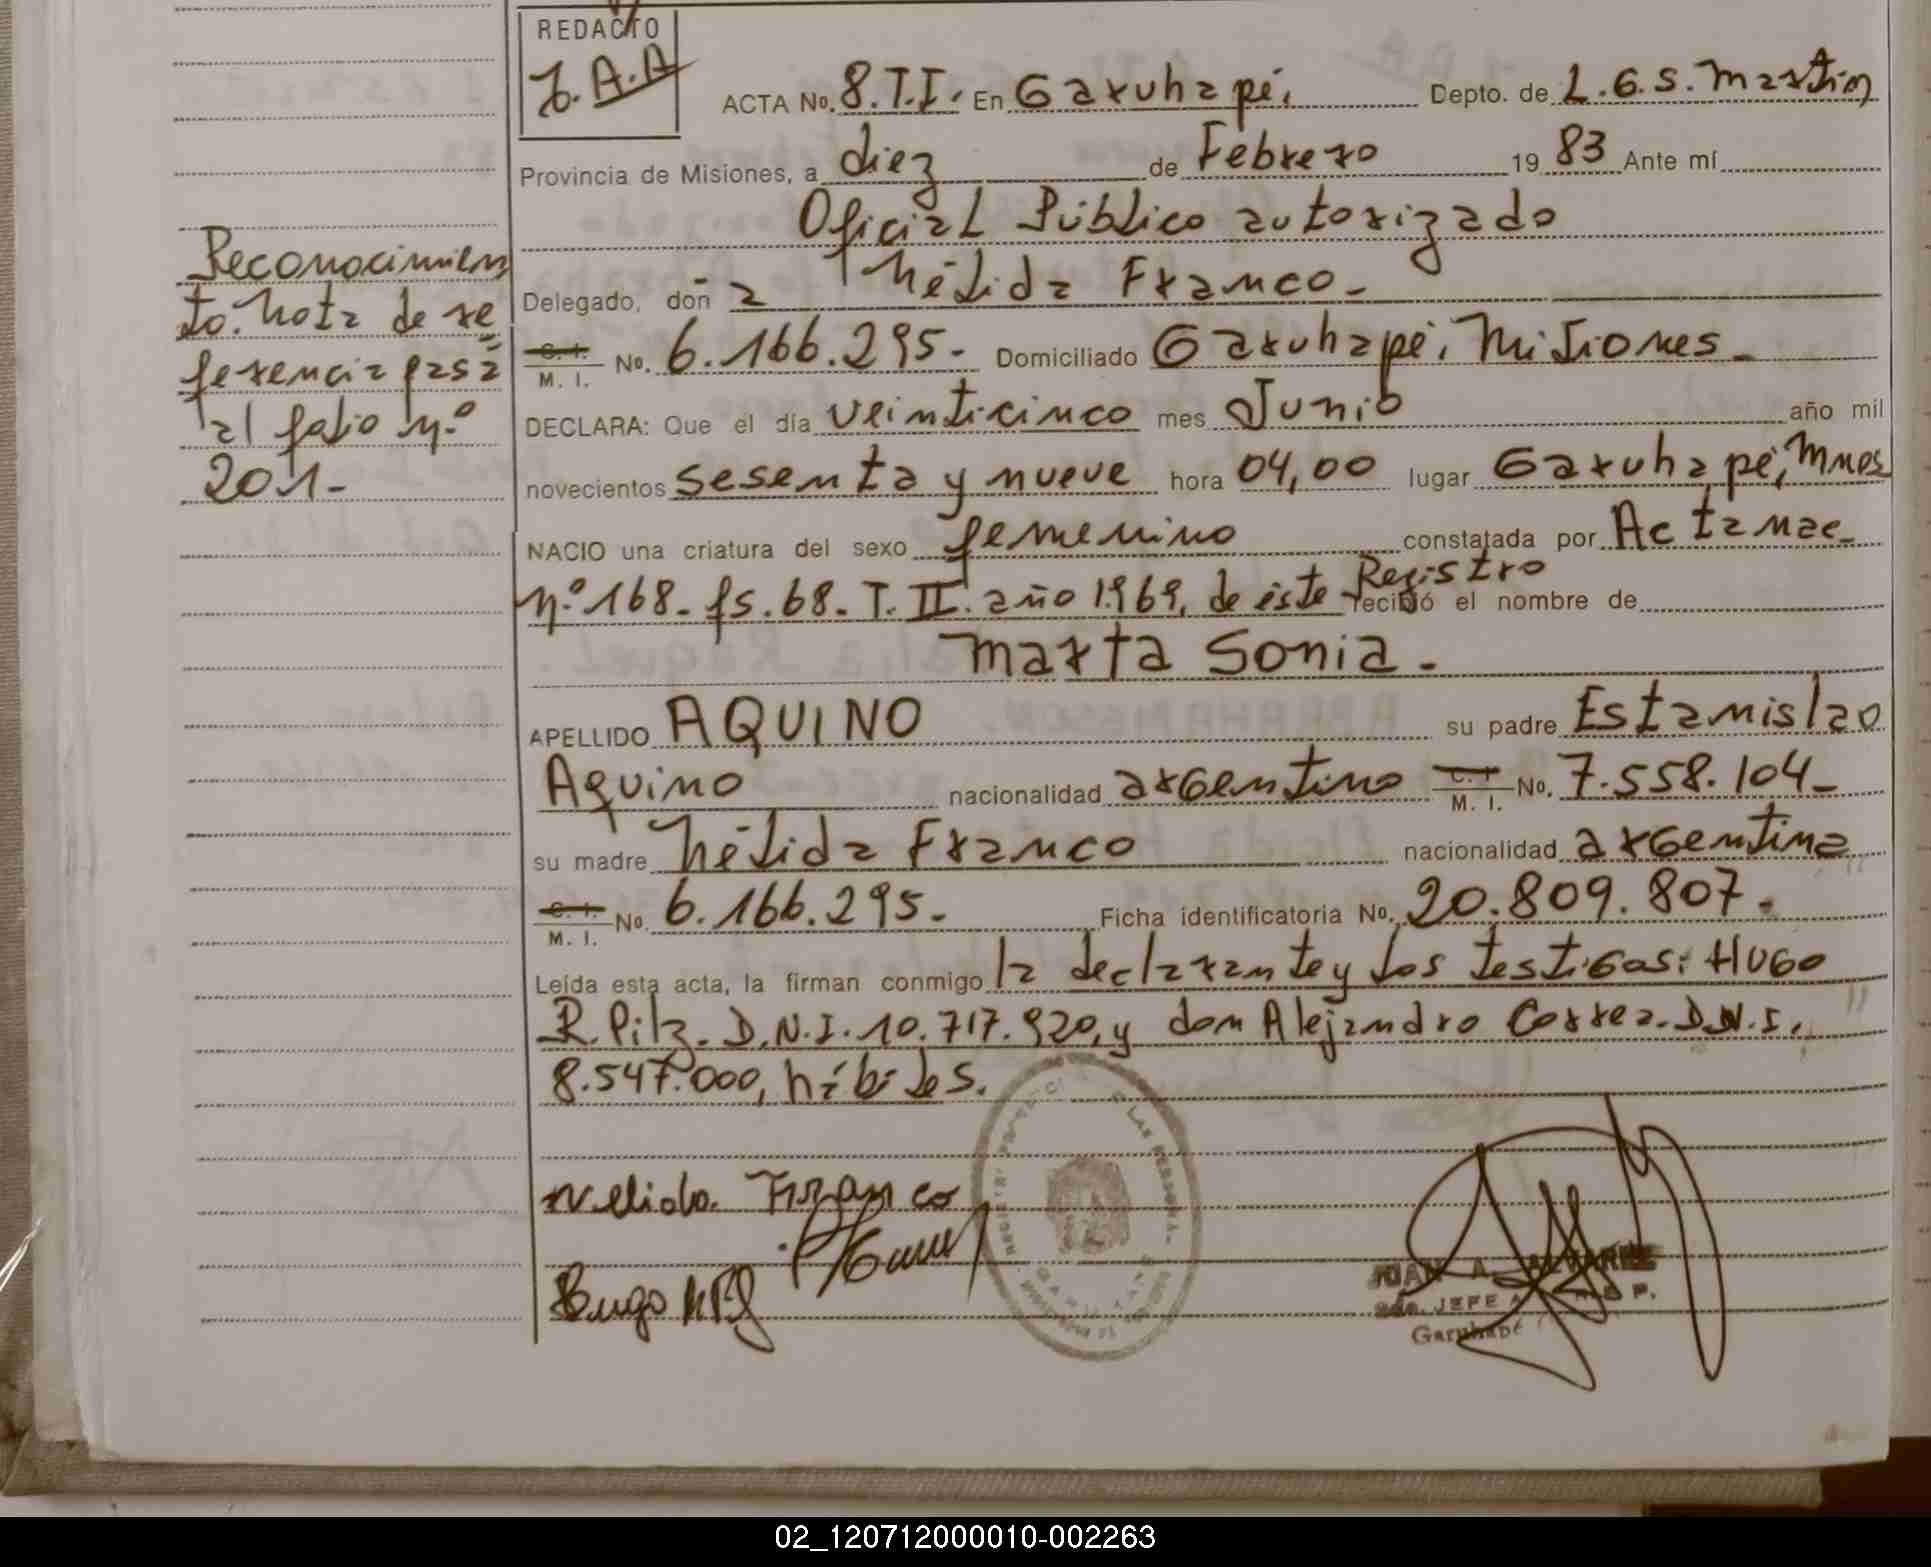 REDACTO
J.A.A
ACTA No. 8.T.I. En Garuhapé, Depto. de L.G.S. Martin
Provincia de Misiones, a diez de Febrero 19 83 Ante mí
Oficial Público autorizado
Delegado, don a Nélida Franco.-
C. I. M. I. No. 6.166.295.- Domiciliado Garuhapé, Misiones.-
DECLARA: Que el día veinticinco mes Junio año mil
novecientos sesenta y nueve hora 04,00 lugar Garuhapé, Mnes
NACIO una criatura del sexo femenino constatada por Acta nac.
nº 168- fs. 68- T. II. año 1969, de éste Registro recibió el nombre de
Marta Sonia.-
APELLIDO AQUINO su padre Estanislao
Aquino nacionalidad argentino C. I. M. I. No. 7.558.104-
su madre Nélida Franco nacionalidad argentina
C. I. M. I. No. 6.166.295.- Ficha identificatoria No. 20.809.807.-
Leída esta acta, la firman conmigo la declarante y los testigos: Hugo
R. Pilz- D.N.I. 10.717.920, y don Alejandro Correa- D.N.I.
8.547.000, hábiles.
Reconocimien
to. Nota de re
ferencia pasá
al folio nº
201-
Nelida Franco
Hugo
JUAN A. ALVAREZ
JEFE
Garuhapé
02_120712000010-002263